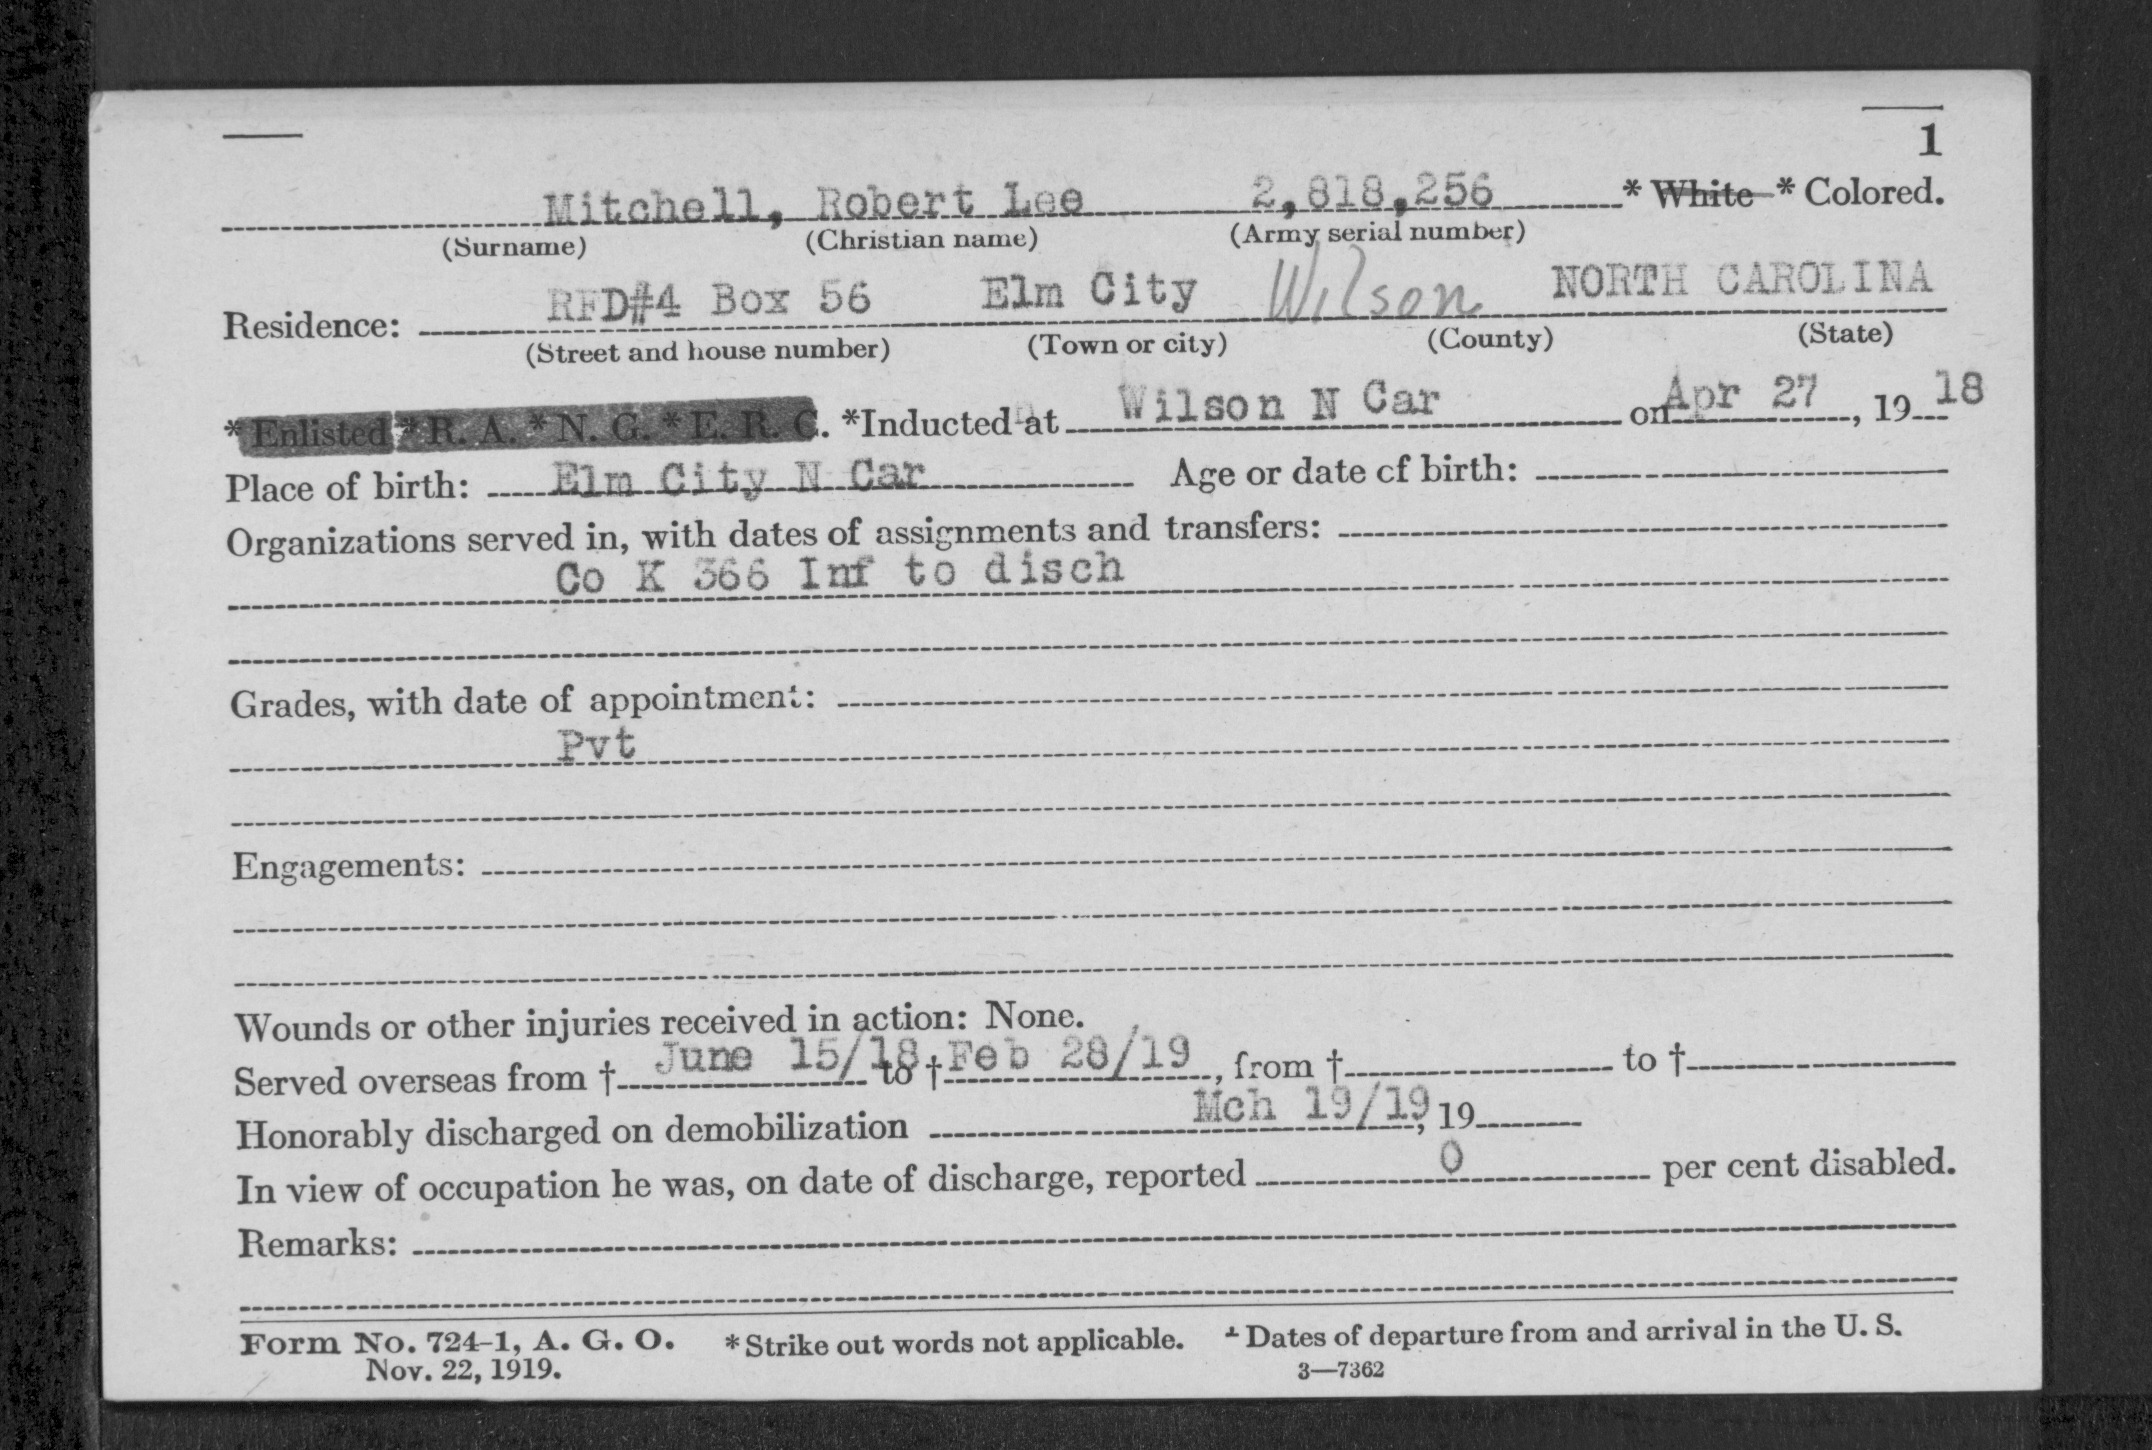 1
Mitchell, Robert Lee 2,818,256 * White * Colored.
(Surname) (Christian name) (Army serial number)
Residence: RFD#4 Box 56 Elm City Wilson NORTH CAROLINA
(Street and house number) (Town or city) (County) (State)
* Enlisted * R. A. * N. G. * E. R. C. *Inducted at Wilson N Car on Apr 27, 1918
Place of birth: Elm City N Car Age or date of birth:
Organizations served in, with dates of assignments and transfers:
Co K 366 Inf to disch
Grades, with date of appointment:
Pvt
Engagements:
Wounds or other injuries received in action: None.
Served overseas from † June 15/18 to † Feb 28/19, from † to †
Honorably discharged on demobilization Mch 19/19, 19
In view of occupation he was, on date of discharge, reported 0 per cent disabled.
Remarks:
Form No. 724-1, A. G. O. * Strike out words not applicable. † Dates of departure from and arrival in the U. S.
Nov. 22, 1919. 3—7362